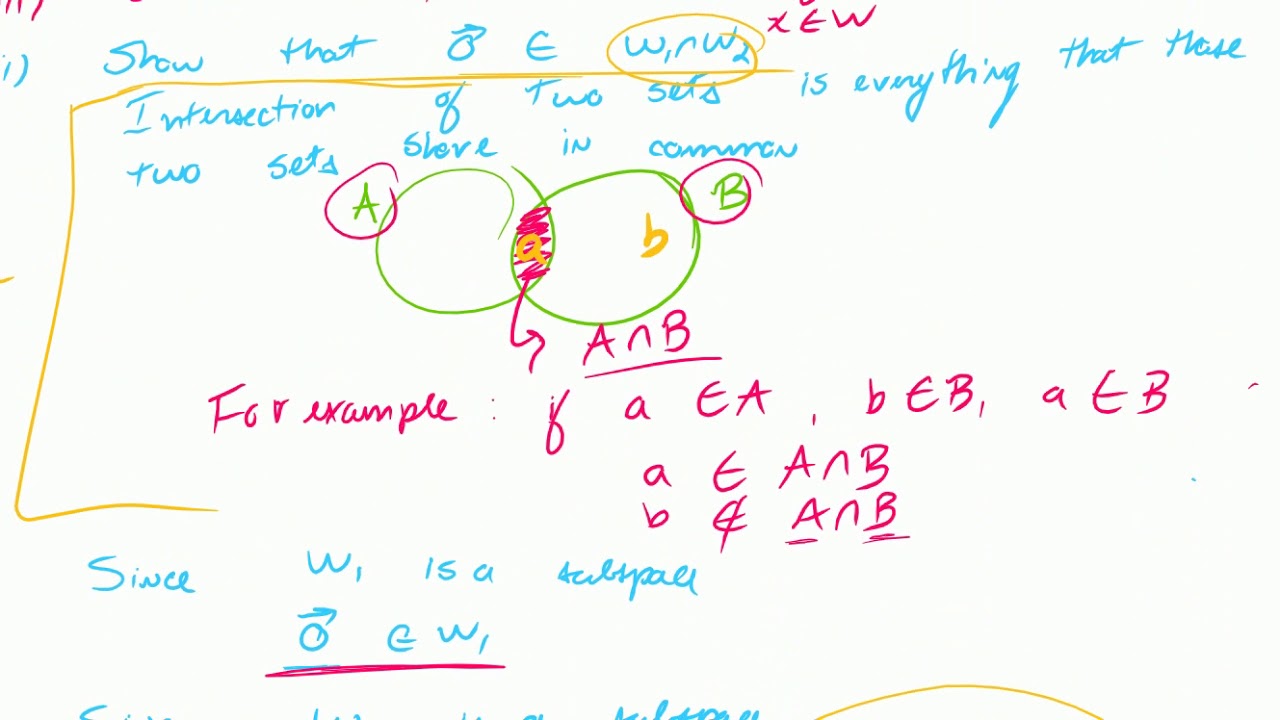 x ∈ W
i) Show that 0⃗ ∈ W₁∩W₂
Intersection of two sets is everything that those
two sets share in common
A B
a b
A∩B
For example : if a ∈ A , b ∈ B, a ∈ B
a ∈ A∩B
b ∉ A∩B
Since W₁ is a subspace
0⃗ ∈ W₁
Since W₂ is a subspace